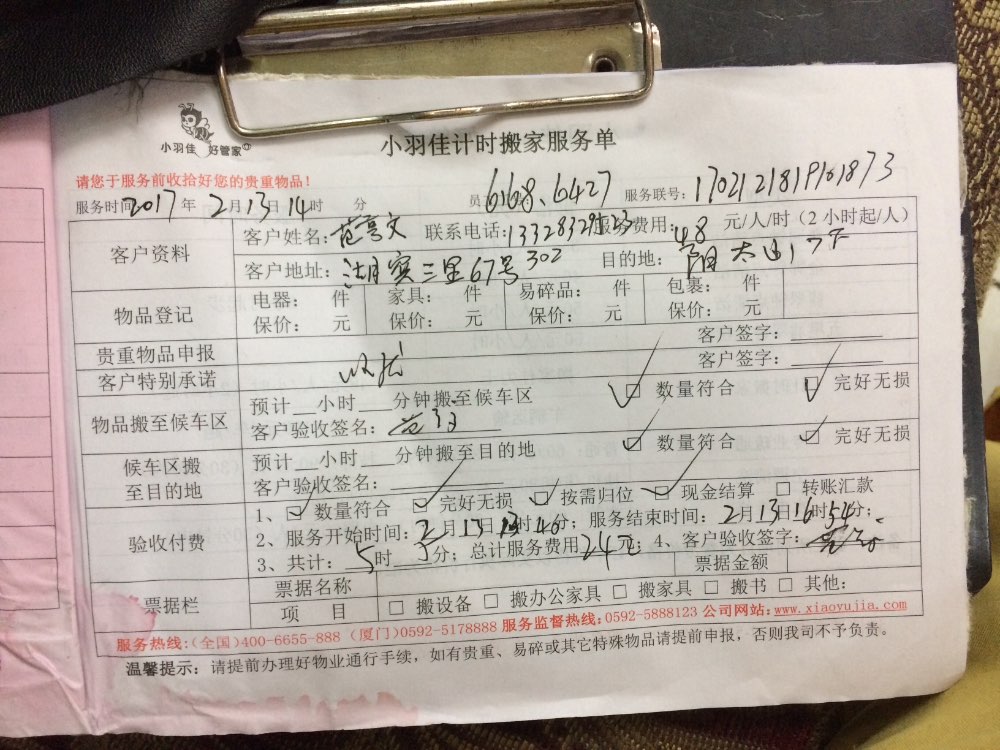 小羽佳 好管家
小羽佳计时搬家服务单
请您于服务前收拾好您的贵重物品!
服务时间 2017年 2月13日14时 分 员 6168、6427 服务联号: 1702121819161873
客户资料 客户姓名: 联系电话: 服务费用: 48 元/人/时(2小时起/人)
客户地址: 湖宾三里67号302 目的地:
物品登记 电器: 件 家具: 件 易碎品: 件 包裹: 件
保价: 元 保价: 元 保价: 元 保价: 元
贵重物品申报 客户签字:
客户特别承诺 客户签字:
物品搬至候车区 预计 小时 分钟搬至候车区 数量符合 完好无损
客户验收签名:
候车区搬至目的地 预计 小时 分钟搬至目的地 数量符合 完好无损
客户验收签名:
验收付费 1、 数量符合 完好无损 按需归位 现金结算 转账汇款
2、服务开始时间: 2月13日 时 分; 服务结束时间: 2月13日16时54分;
3、共计: 5时 分; 总计服务费用 24元; 4、客户验收签字:
票据栏 票据名称 票据金额
项 目 搬设备 搬办公家具 搬家具 搬书 其他:
服务热线:(全国)400-6655-888 (厦门)0592-5178888 服务监督热线:0592-5888123 公司网站:www.xiaoyujia.com
温馨提示: 请提前办理好物业通行手续,如有贵重、易碎或其它特殊物品请提前申报,否则我司不予负责。